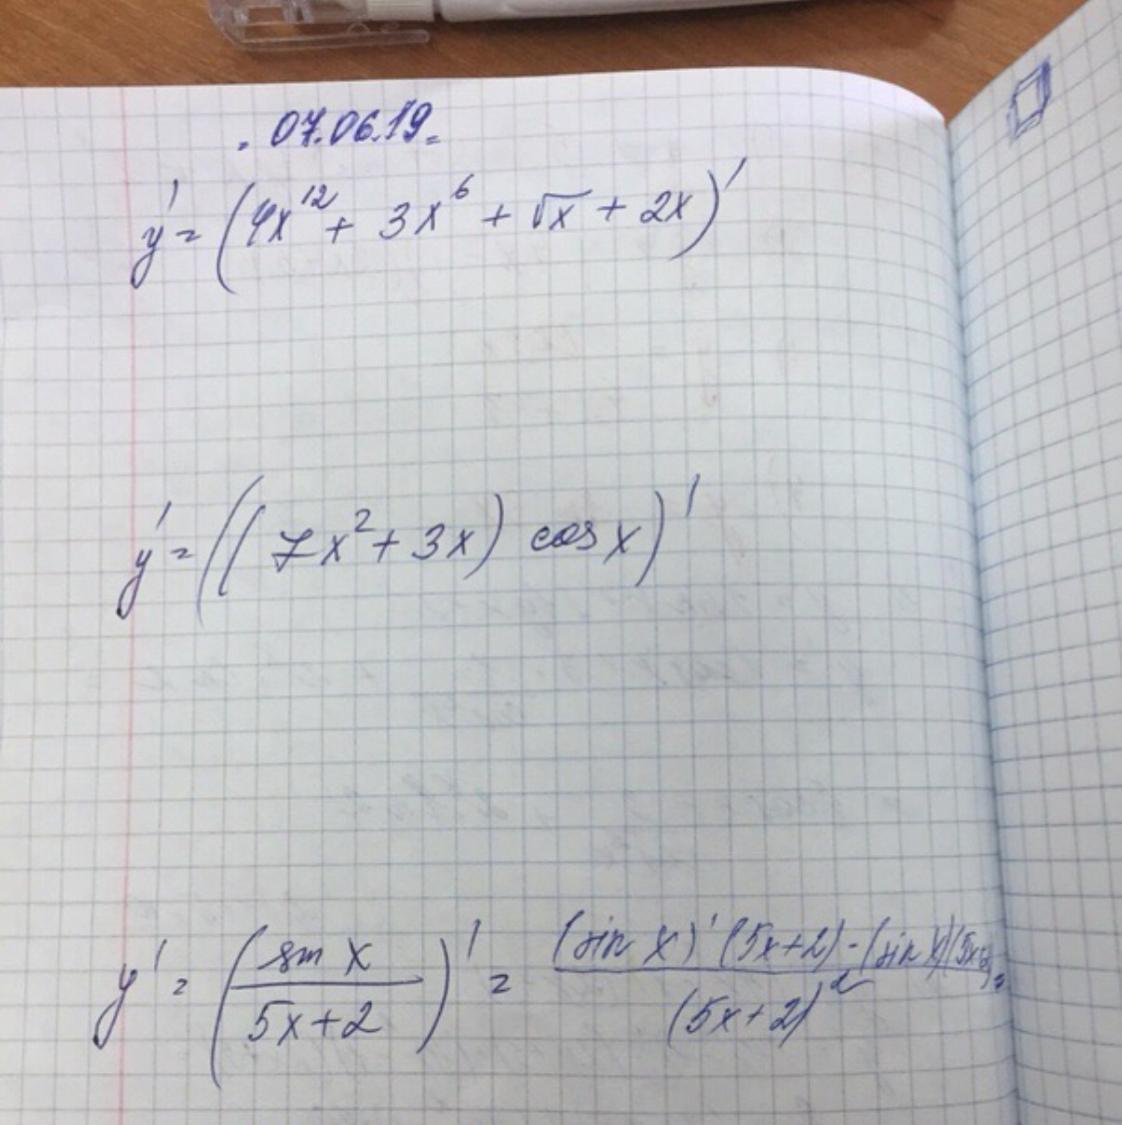 . 07.06.19.
y' = (4x¹² + 3x⁶ + √x + 2x)'
y' = ((7x² + 3x) cos x)'
y' = (sin x / 5x+2)' = (sin x)' (5x+2) - (sin x)(5x+2) / (5x+2)² =